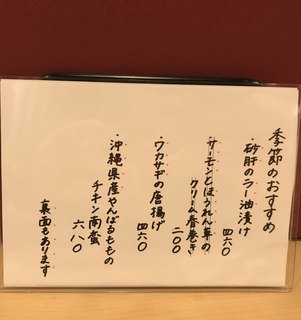 季節のおすすめ
・砂肝のラー油漬け
四六〇
・サーモンとほうれん草の
クリーム春巻き
二〇〇
・ワカサギの唐揚げ
四六〇
・沖縄県産やんばるももの
チキン南蛮
六八〇
裏面もあります